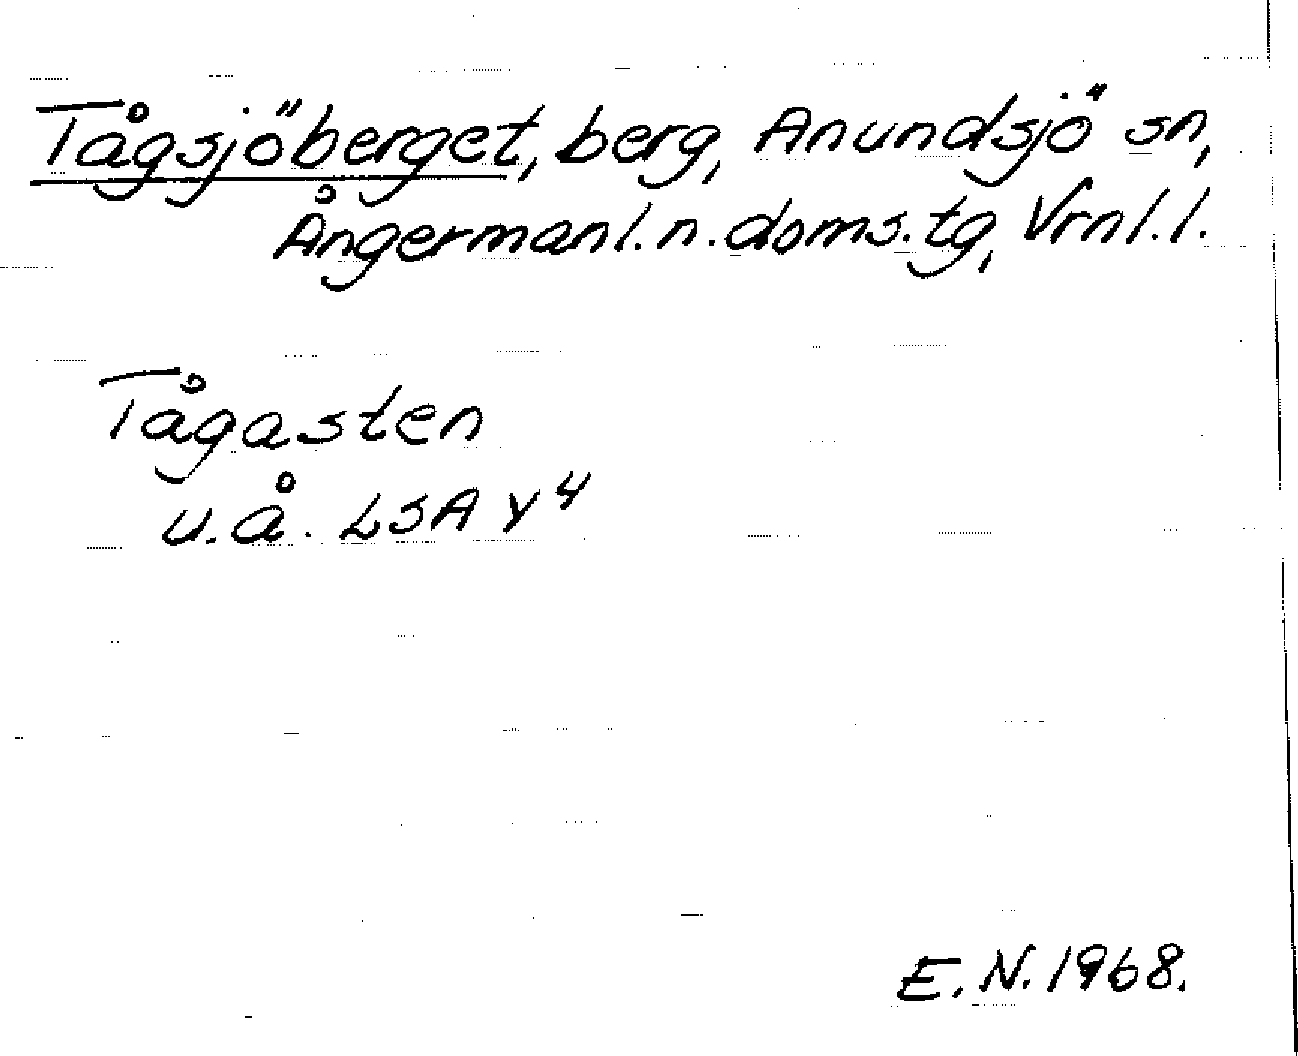 Tågsjöberget, berg, Anundsjö sn,
Ångermanl. n. doms. tg, Vrnl. l.
Tågasten
u.å. LSA Y4
E. N. 1968.